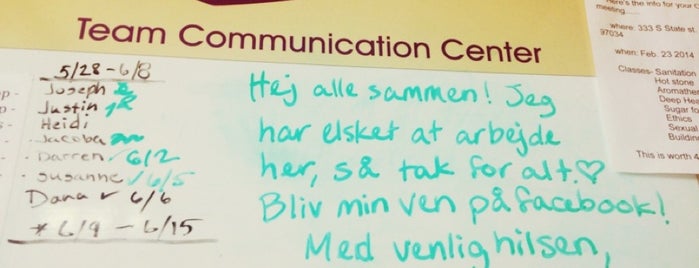 Team Communication Center
5/28-6/8
Joseph
Justin
Heidi
Jacoba
Darren ✓ 6/2
Susanne ✓ 6/5
Dana ✓ 6/6
* 6/9 - 6/15
Hej alle sammen! Jeg
har elsket at arbejde
her, så tak for alt.♡
Bliv min ven på facebook!
Med venlig hilsen,
Here's the info for your
meeting......
where: 333 S State st.
97034
when: Feb. 23 2014
Classes- Sanitation
Hot stone
Sugar
Ethics
Sexual
This is worth